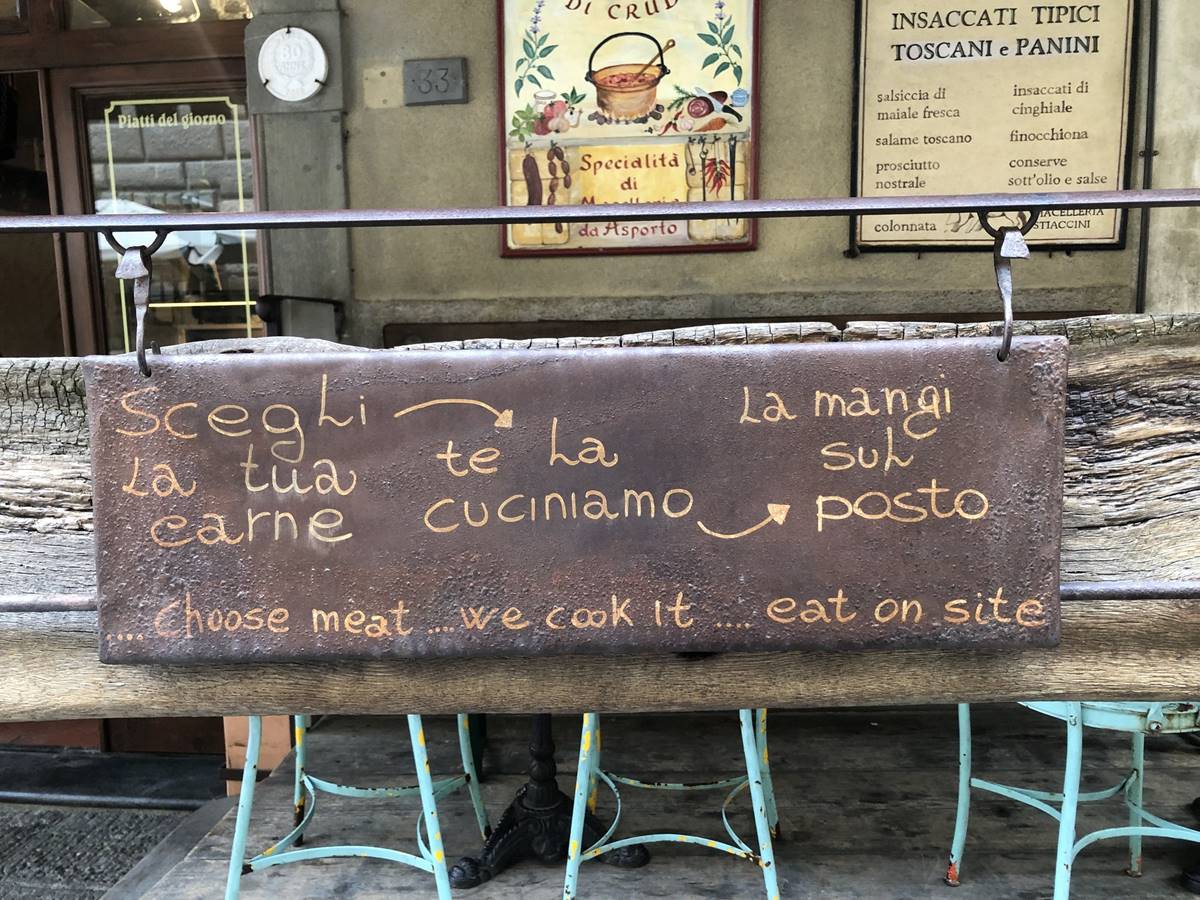 DI CRUD
Specialità
di
da Asporto
INSACCATI TIPICI
TOSCANI e PANINI
salsiccia di
maiale fresca
salame toscano
prosciutto
nostrale
colonnata
insaccati di
cinghiale
finocchiona
conserve
sott'olio e salse
MACELLERIA
STIACCINI
33
Piatti del giorno
Scegli
La tua
carne
te La
cuciniamo
La mangi
suL
posto
.... choose meat ... we cook it .... eat on site